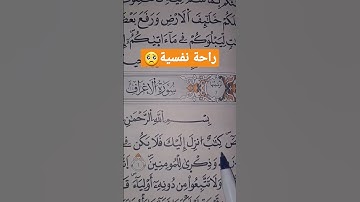 لَكُمْ خَلَٰٓئِفَ ٱلْأَرْضِ وَرَفَعَ بَعْضَ
لِّيَبْلُوَكُمْ فِى مَآ ءَاتَىٰكُمْ
راحة نفسية🥺
سُورَةُ ٱلْأَعْرَافِ
بِسْمِ ٱللَّهِ ٱلرَّحْمَٰنِ
كِتَٰبٌ أُنزِلَ إِلَيْكَ فَلَا يَكُن فِى
وَذِكْرَىٰ لِلْمُؤْمِنِينَ
وَلَا تَتَّبِعُوا۟ مِن دُونِهِۦٓ أَوْلِيَآءَ